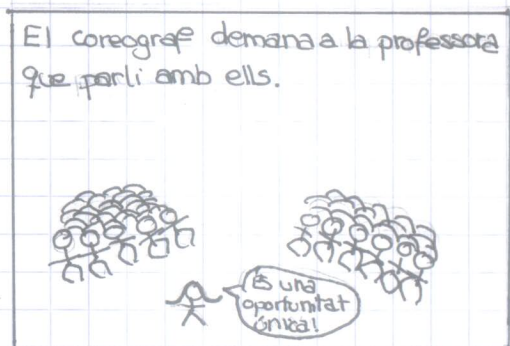 El coreograf demana a la professora
que parli amb ells.
És una
oportunitat
única!